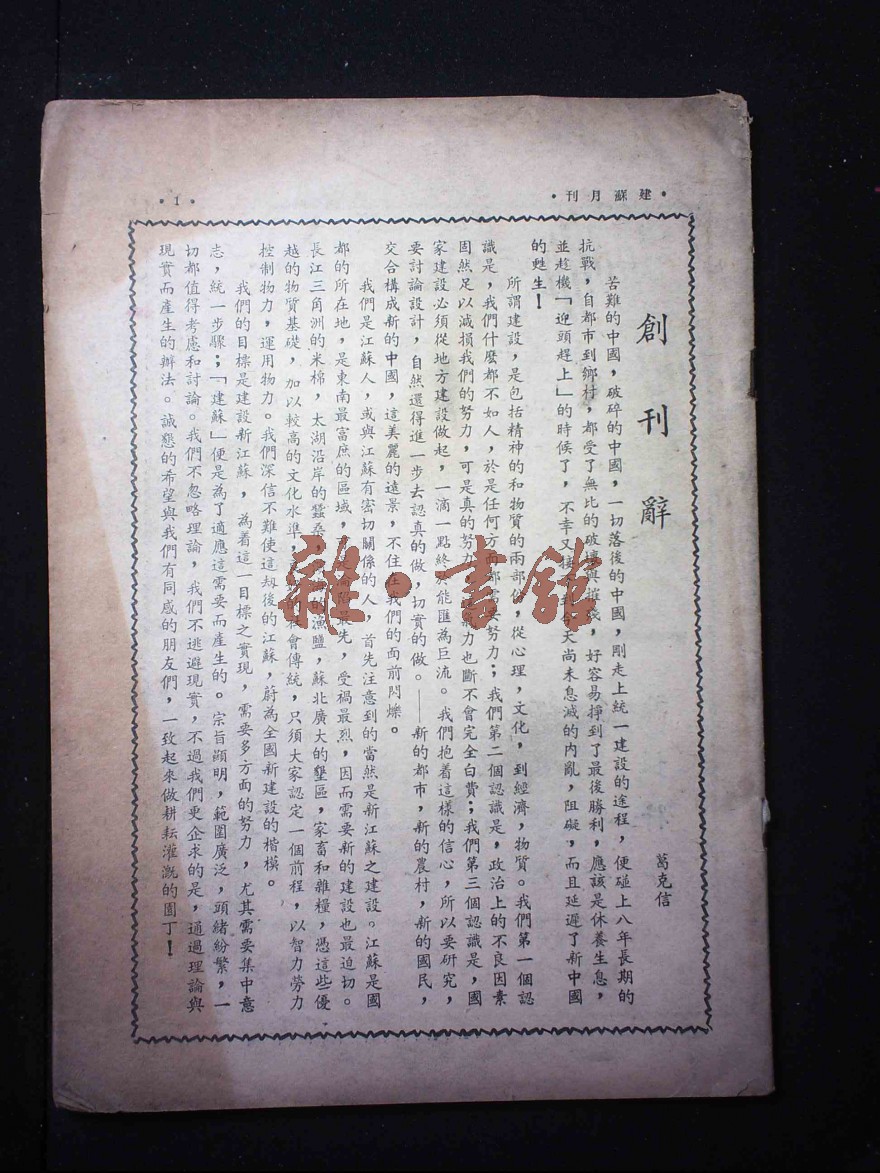 •建蘇月刊•
•1•
創刊辭
葛克信
苦難的中國，破碎的中國，一切落後的中國，剛走上統一建設的途程，便碰上八年長期的
抗戰，自都市到鄉村，都受了無比的破壞與摧殘，好容易掙到了最後勝利，應該是休養生息，
並趁機「迎頭趕上」的時候了，不幸又接天尚未息滅的內亂，阻礙，而且延遲了新中國
的甦生！
所謂建設，是包括精神的和物質的兩部份，從心理，文化，到經濟，物質。我們第一個認
識是，我們什麼都不如人，於是任何方面都需要努力；我們第二個認識是，政治上的不良因素
固然足以減損我們的努力，可是真的努力，力也斷不會完全白費；我們第三個認識是，國
家建設必須從地方建設做起，一滴一點終能匯為巨流。我們抱着這樣的信心，所以要研究，
要討論設計，自然還得進一步去認真的做，切實的做。——新的都市，新的農村，新的國民，
交合構成新的中國，這美麗的遠景，不住在我們的面前閃爍。
我們是江蘇人，或與江蘇有密切關係的人，首先注意到的當然是新江蘇之建設。江蘇是國
都的所在地，是東南最富庶的區域，淪陷最先，受禍最烈，因而需要新的建設也最迫切。
長江三角洲的米棉，太湖沿岸的蠶桑，的漁鹽，蘇北廣大的墾區，家畜和雜糧，憑這些優
越的物質基礎，加以較高的文化水準，的社會傳統，只須大家認定一個前程，以智力勞力
控制物力，運用物力。我們深信不難使這刼後的江蘇，蔚為全國新建設的楷模。
我們的目標是建設新江蘇，為着這一目標之實現，需要多方面的努力，尤其需要集中意
志，統一步驟；「建蘇」便是為了適應這需要而產生的。宗旨顯明，範圍廣泛，頭緒紛繁，一
切都值得考慮和討論。我們不忽略理論，我們不逃避現實，不過我們更企求的是，通過理論與
現實而產生的辦法。誠懇的希望與我們有同感的朋友們，一致起來做耕耘灌溉的園丁！
雜·書館